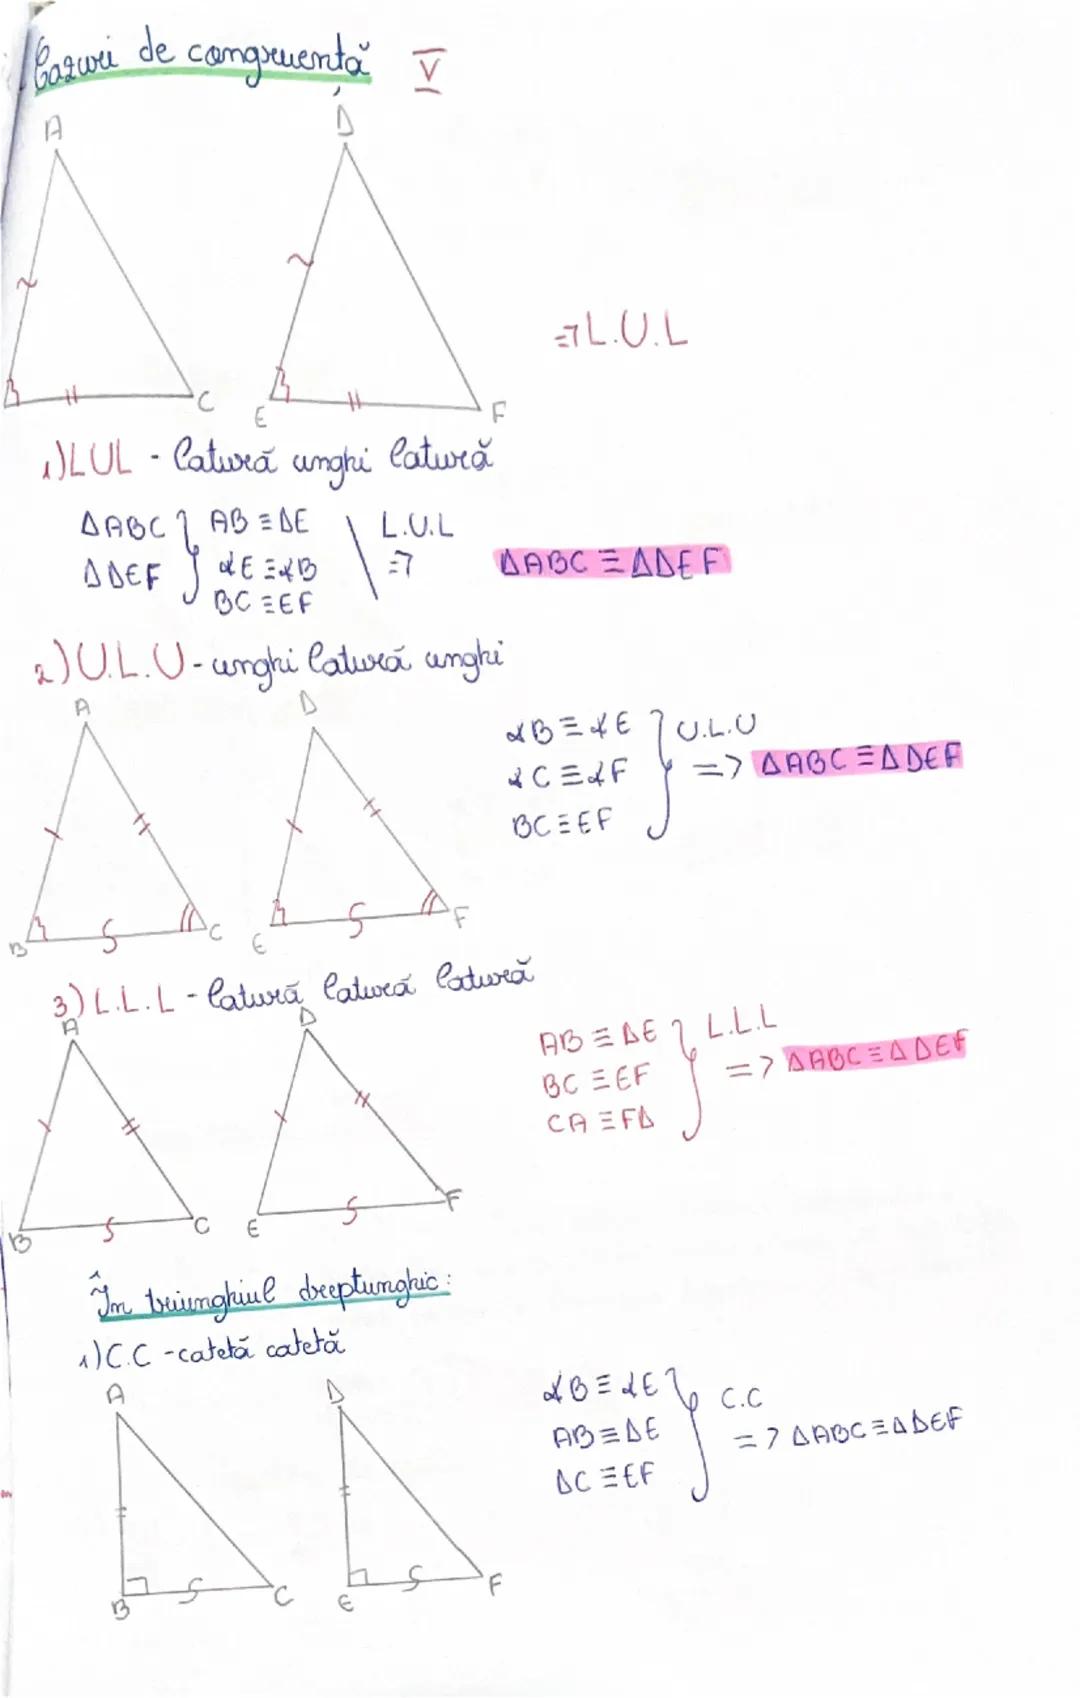 Cazuri de congruență V
A D
=> L.U.L
C E F
1) LUL - latură unghi latură
ΔABC } AB ≡ DE \ L.U.L
ΔDEF ∢E ≡ ∢B => ΔABC ≡ ΔDEF
BC ≡ EF
2) U.L.U - unghi latură unghi
A D
∢B ≡ ∢E } U.L.U
∢C ≡ ∢F => ΔABC ≡ ΔDEF
BC ≡ EF
B C E F
3) L.L.L - latură latură latură
A D
AB ≡ DE } L.L.L
BC ≡ EF => ΔABC ≡ ΔDEF
CA ≡ FD
B C E F
În triunghiul dreptunghic:
1) C.C - catetă catetă
A D
∢B ≡ ∢E } C.C
AB ≡ DE => ΔABC ≡ ΔDEF
ΔC ≡ EF
B C E F